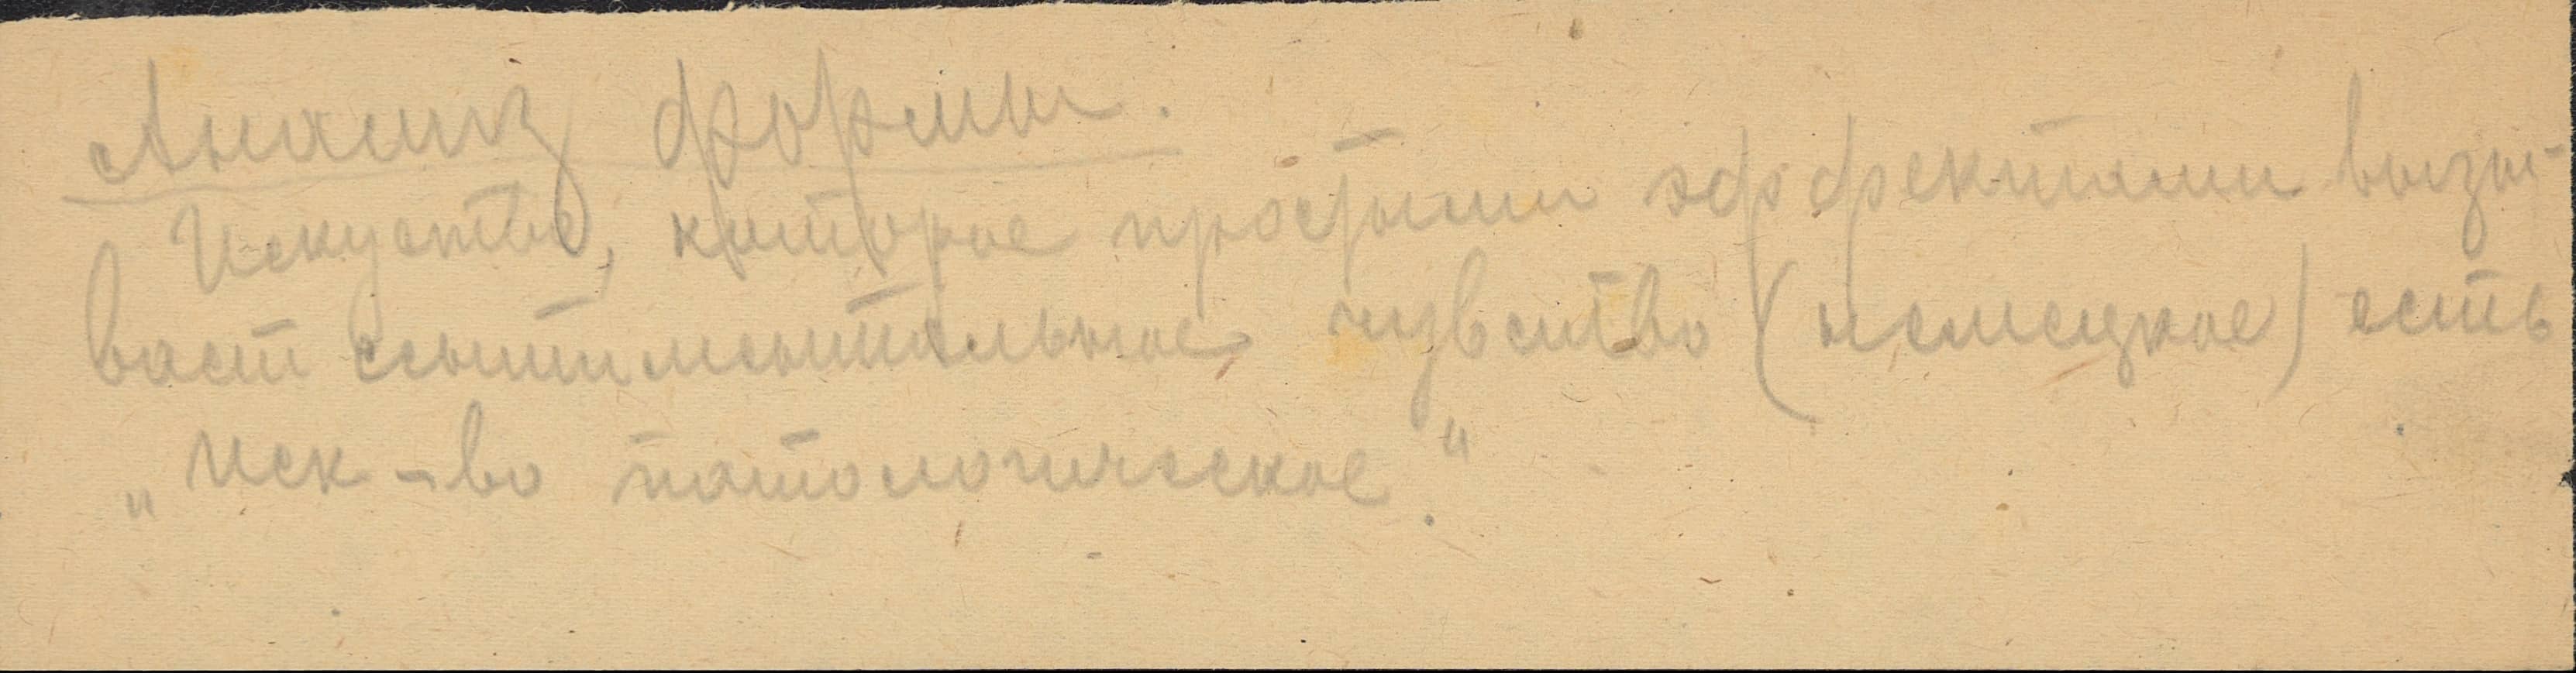 Анализ формы.
Искуство, которое простыми эффектами вызы-
вает сентиментальное чувство (немецкое) есть
„Иск-во патологическое."